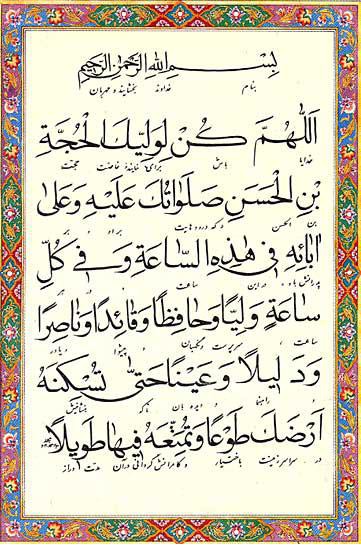 بِسْمِ اللهِ الرَّحْمٰنِ الرَّحِیمِ
بنام خداوند بخشاینده و مهربان
اَللّٰهُمَّ كُنْ لِوَلِيِّكَ الْحُجَّةِ
خدایا باش برای نماینده خاصت حجت
بْنِ الْحَسَنِ صَلَوَاتُكَ عَلَيْهِ وَعَلىٰ
بن الحسن که درودهایت بر او و بر
اٰبَائِهِ فِي هٰذِهِ السَّاعَةِ وَفِي كُلِّ
پدرانش باد در این ساعت و در هر
سَاعَةٍ وَلِيًّا وَحَافِظًا وَقَائِدًا وَنَاصِرًا
ساعت سرپرست و نگهبان پیشوا و یاور
وَدَلِيلًا وَعَيْنًا حَتّىٰ تُسْكِنَهُ
راهنما و دیده بان تا که بنشانیش
اَرْضَكَ طَوْعًا وَتُمَتِّعَهُ فِيهَا طَوِيلًا
در سراسر زمینت با اختیار و کامرانش گردانی در آن مدت دراز